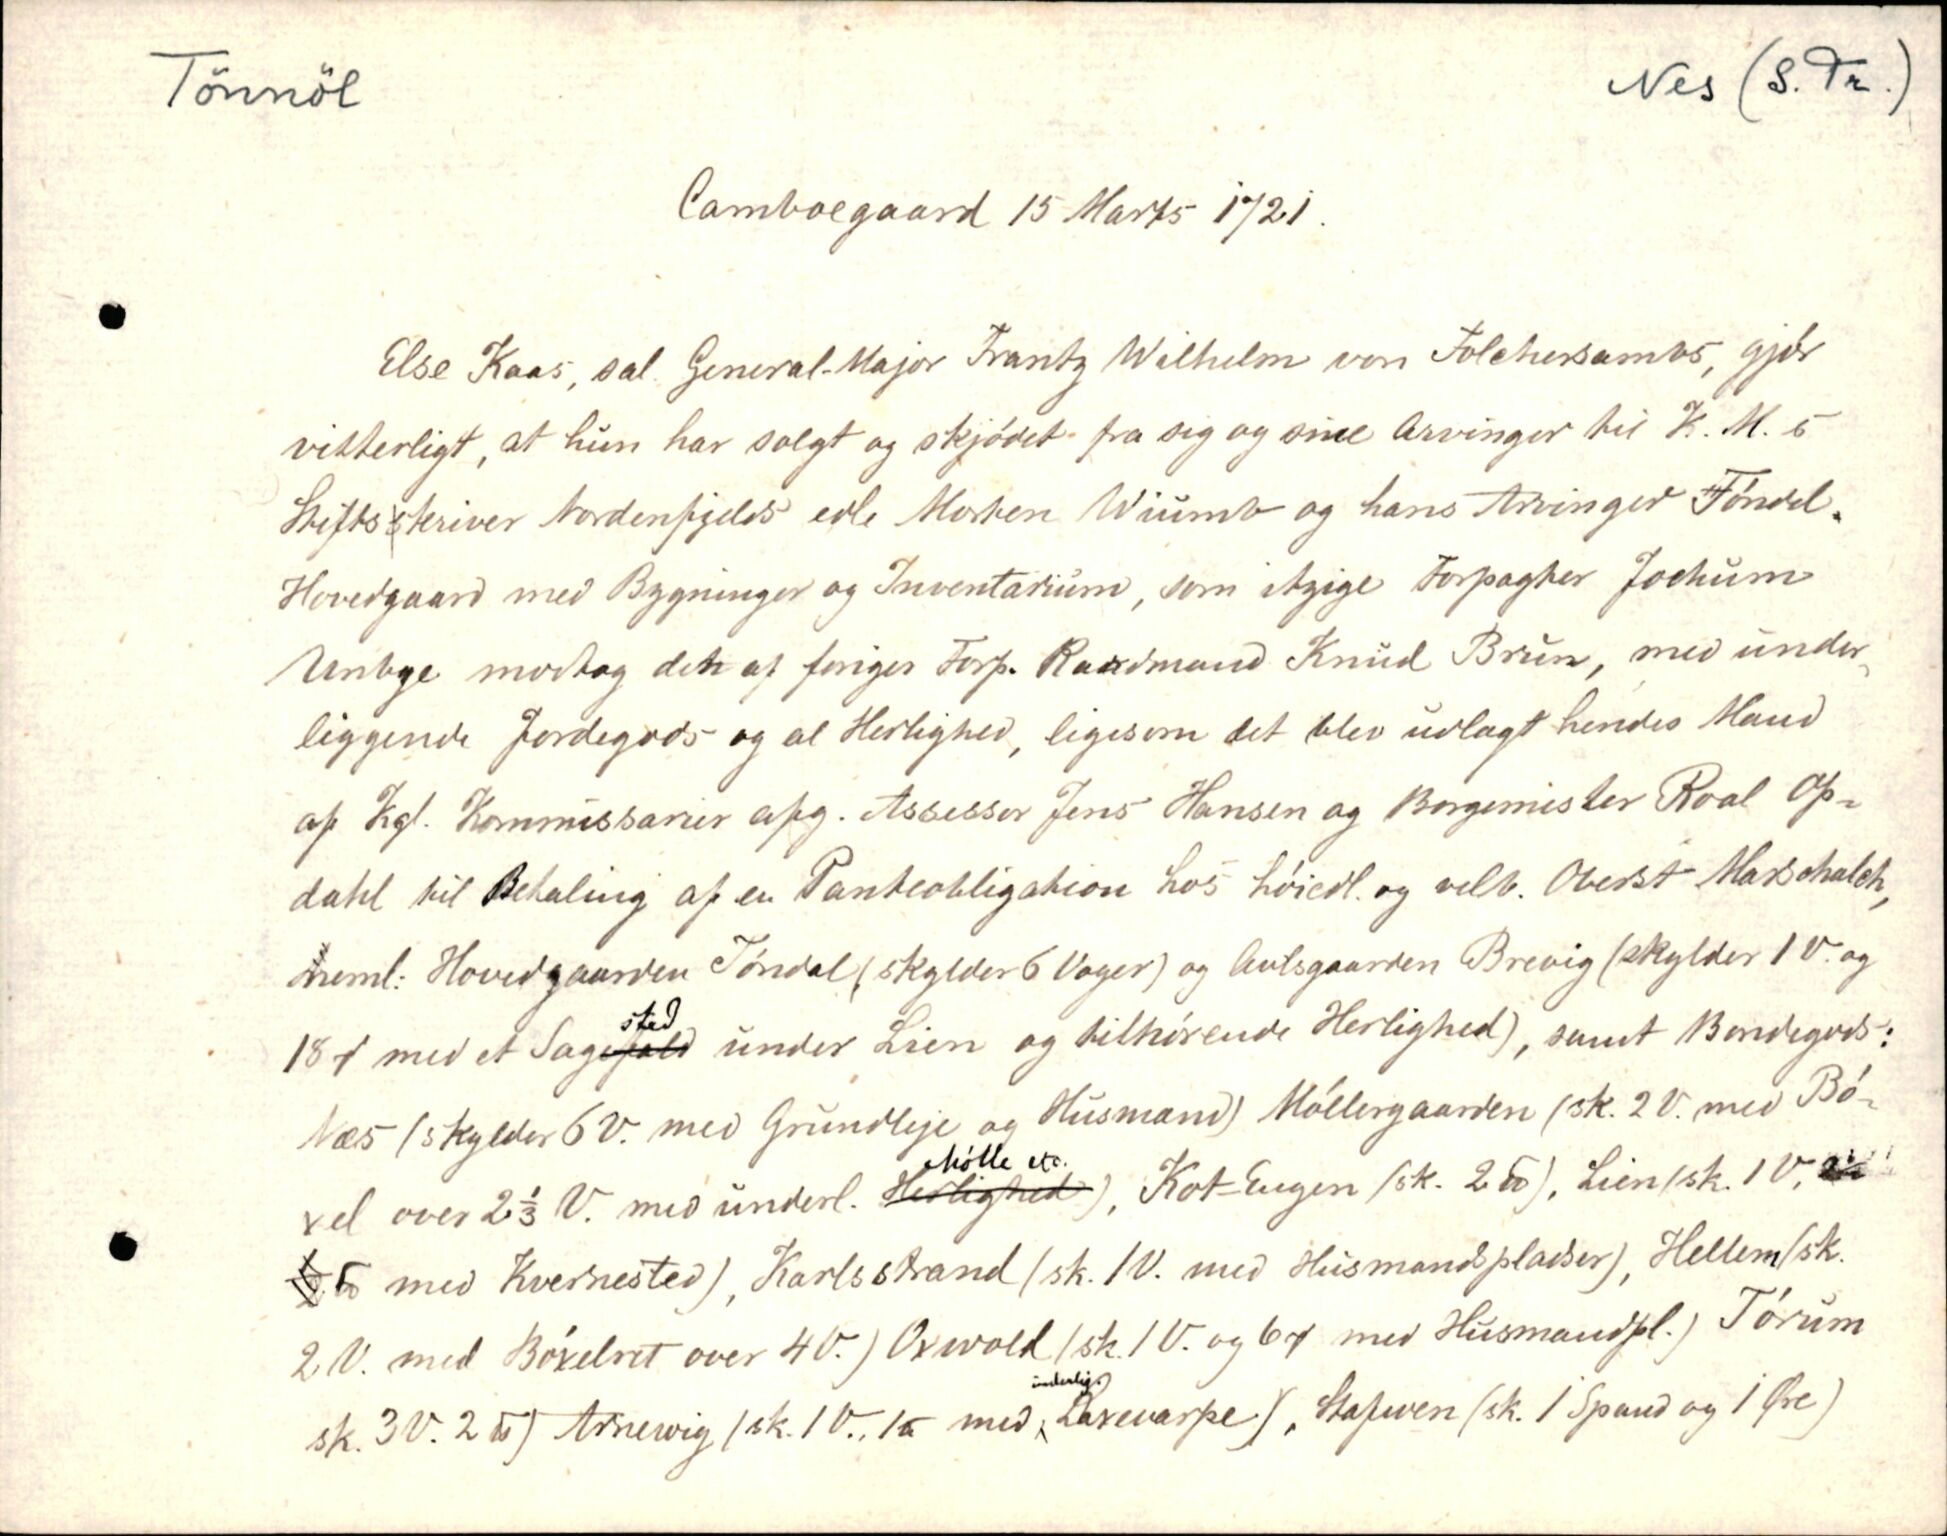 Tönnöl
Nes (S. Tr.)
Comboegaard 15 Marts 1721.
Else Kaas, sal. General-Major Frantz Wilhelm von Folchersambs, gjør
vitterligt, at hun har solgt og skjødet fra sig og sine Arvinger til K. M. s
Stiftsskriver Nordenfjelds edle Morten Wiumb og hans Arvinger Tøndel
Hovedgaard med Bygninger og Inventarium, som itzige Forpagter Jochum
Unbye modtog det af foriger Forp. Raadmand Knud Brun, med under-
liggende Jordegods og al Herlighed, ligesom det blev udlagt hendes Mand
af Kgl. Kommissarier afg. Assessor Jens Hansen og Borgemister Roal Op-
dahl til Betaling af en Panteobligation hos høiedl. og velb. Oberst Marschalch,
neml: Hovedgaarden Tøndal (skylder 6 Voger) og Avlsgaarden Brevig (skylder 1 V. og
18 med et Sagested under Lien og tilhørende Herlighed), samt Bondegods:
Næs (skylder 6 V. med Grundleje og Husmand) Møllergaarden (sk. 2 V. med Bø-
xel over 2 1/3 V. med underl. Herlighed Mølle etc.), Kot-Engen (sk. 2 ), Lien (sk. 1 V.
med Kvernested), Karlsstrand (sk. 1 V. med Husmandspladser), Hellem (sk.
2 V. med Bøxelret over 4 V.) Oxwold (sk. 1 V. og 6 med Husmandpl.) Tørum
sk. 3 V. 2 ) Arnewig (sk. 1 V., 1 med underlig. Laxevarpe), Stafwen (sk. 1 Spand og 1 Øre)